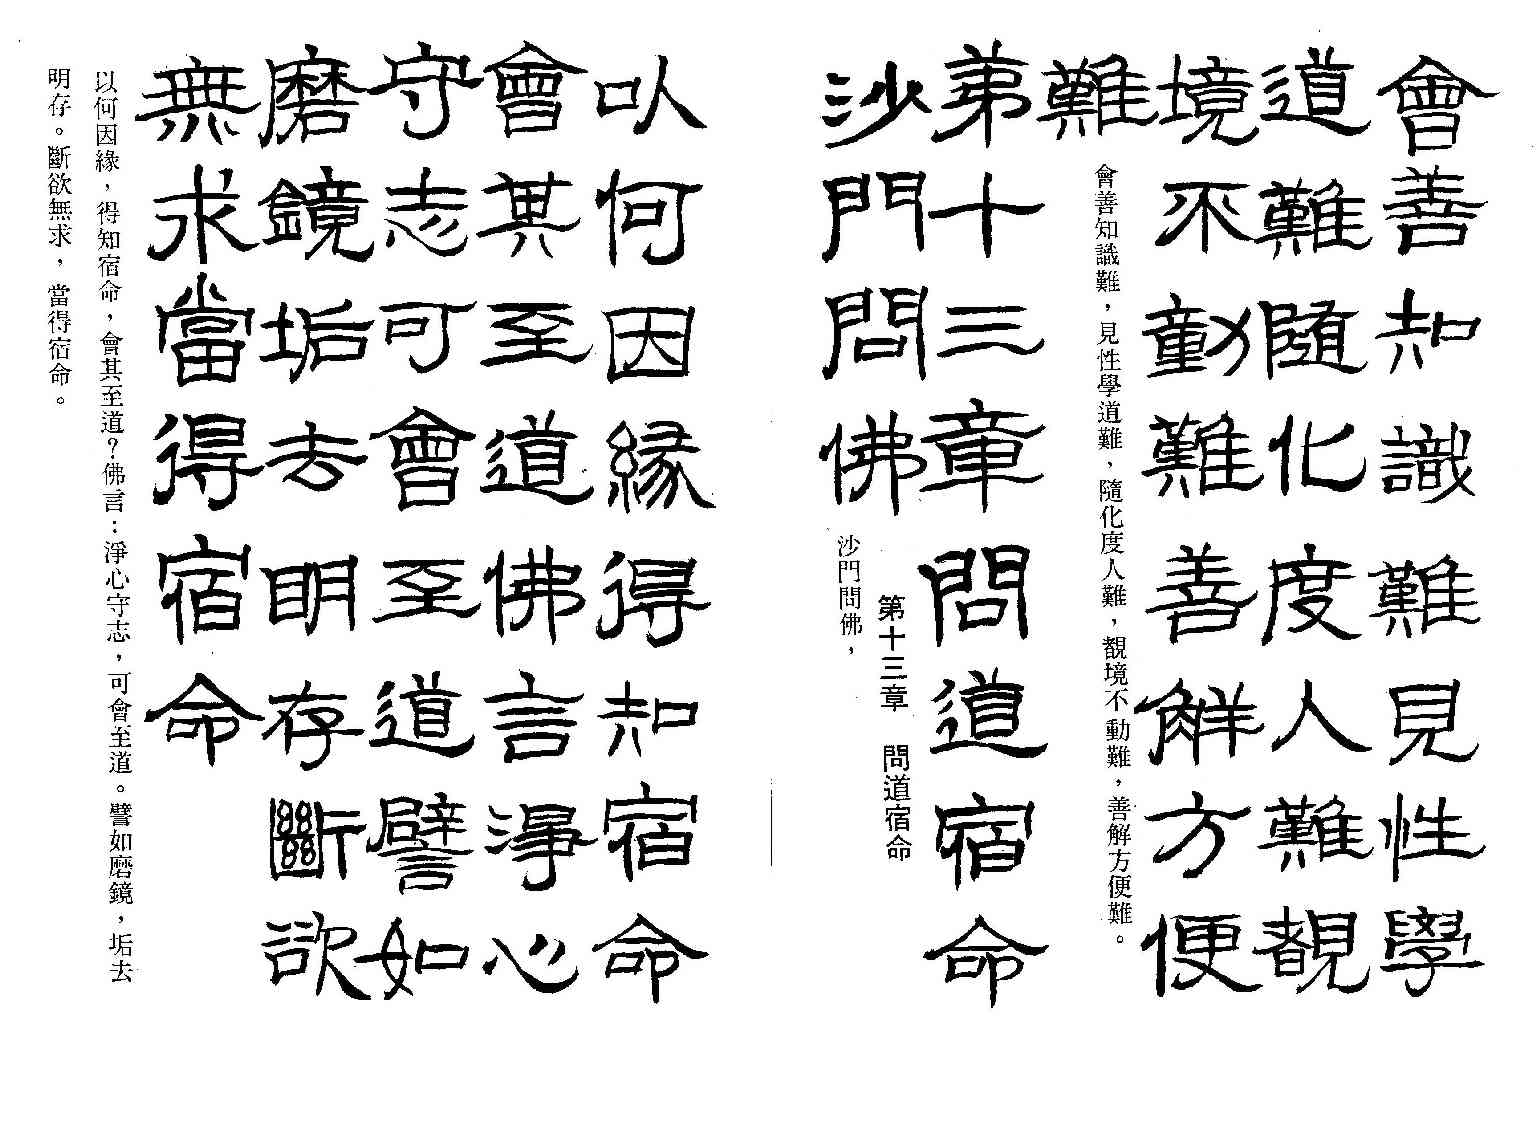 會善知識難見性學
道難隨化度人難覩
境不動難善解方便
難
會善知識難，見性學道難，隨化度人難，覩境不動難，善解方便難。
弟十三章問道宿命
第十三章　問道宿命
沙門問佛
沙門問佛，
以何因緣得知宿命
會其至道佛言淨心
守志可會至道譬如
磨鏡垢去明存斷欲
無求當得宿命
以何因緣，得知宿命，會其至道？佛言：淨心守志，可會至道。譬如磨鏡，垢去
明存。斷欲無求，當得宿命。